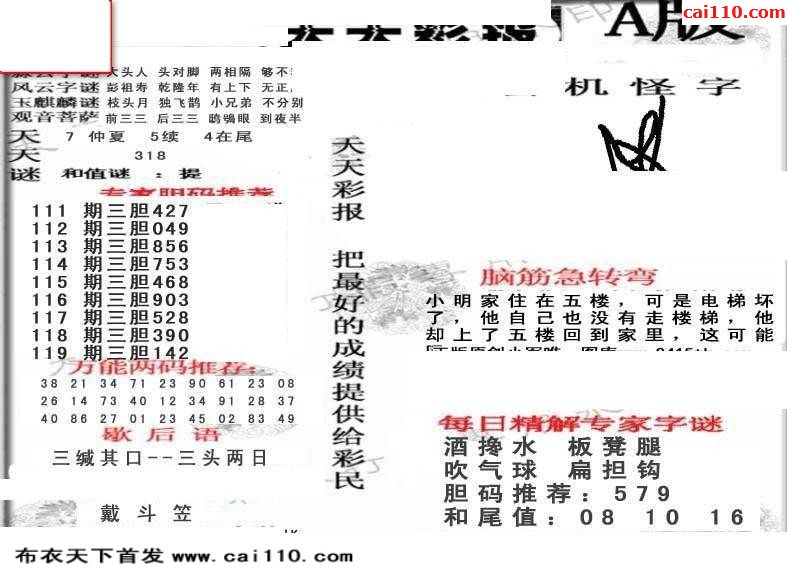 cai110.com
天天彩报 A版
机怪字
大头人 头对脚 两相隔 够不
风云字谜 彭祖寿 乾隆年 有上下 无正
玉麒麟谜 枝头月 独飞鹊 小兄弟 不分别
观音菩萨 前三三 后三三 鸱鸮眼 到夜半
天 7 仲夏 5续 4在尾
天 318
谜 和值谜 : 提
专家胆码推荐
111 期三胆427
112 期三胆049
113 期三胆856
114 期三胆753
115 期三胆468
116 期三胆903
117 期三胆528
118 期三胆390
119 期三胆142
万能两码推荐:
38 21 34 71 23 90 61 23 08
26 14 73 40 12 34 91 28 37
40 86 27 01 23 45 02 83 49
歇后语
三缄其口--三头两日
戴斗笠
天天彩报 把最好的成绩提供给彩民
脑筋急转弯
小明家住在五楼，可是电梯坏
了，他自己也没有走楼梯，他
却上了五楼回到家里，这可能
每日精解专家字谜
酒搀水 板凳腿
吹气球 扁担钩
胆码推荐: 579
和尾值: 08 10 16
布衣天下首发 www.cai110.com